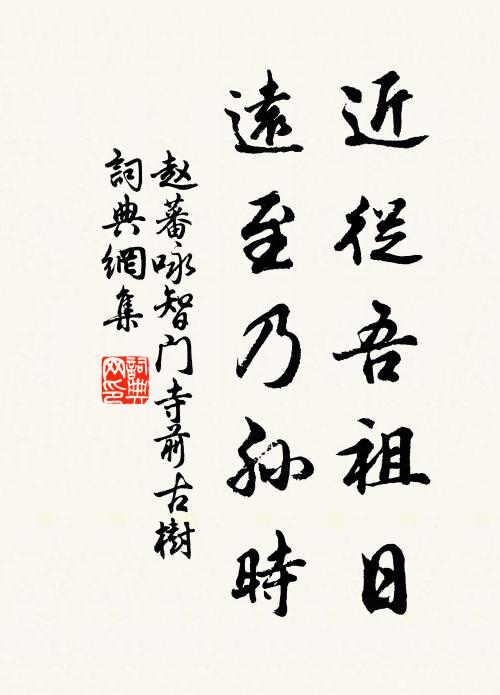 近從吾祖日
遠至乃孫時
赵蕃咏智门寺前古樹
詞典網集
詞典
网印